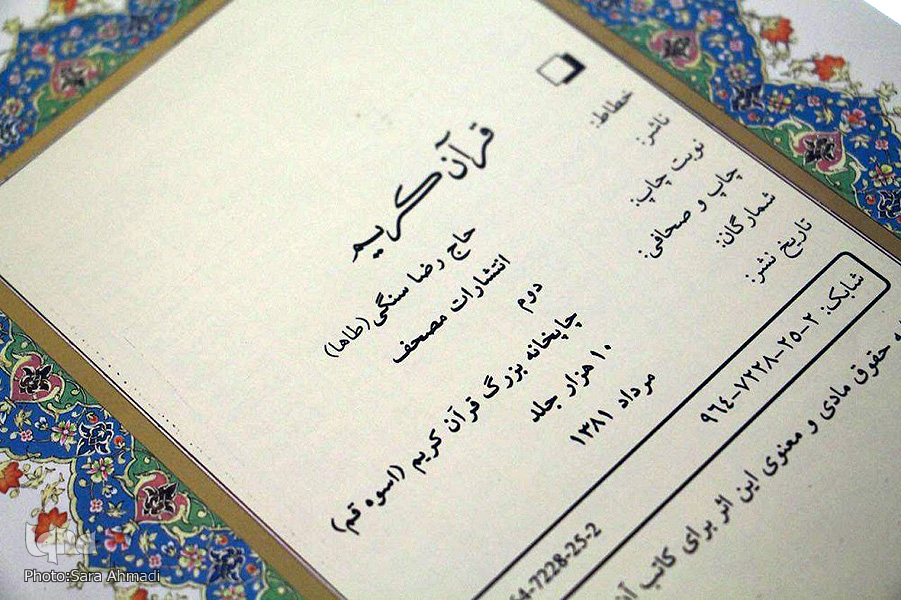 قرآن کریم
خطاط: حاج رضا سنگی (طاها)
ناشر: انتشارات مصحف
نوبت چاپ: دوم
چاپ و صحافی: چاپخانه بزرگ قرآن کریم (اسوه قم)
شمارگان: ۱۰ هزار جلد
تاریخ نشر: مرداد ۱۳۸۱
شابک: ۲-۲۵-۷۲۲۸-۹٦٤
64-7228-25-2
حقوق مادی و معنوی این اثر برای کاتب آن
iqna
Photo:Sara Ahmadi